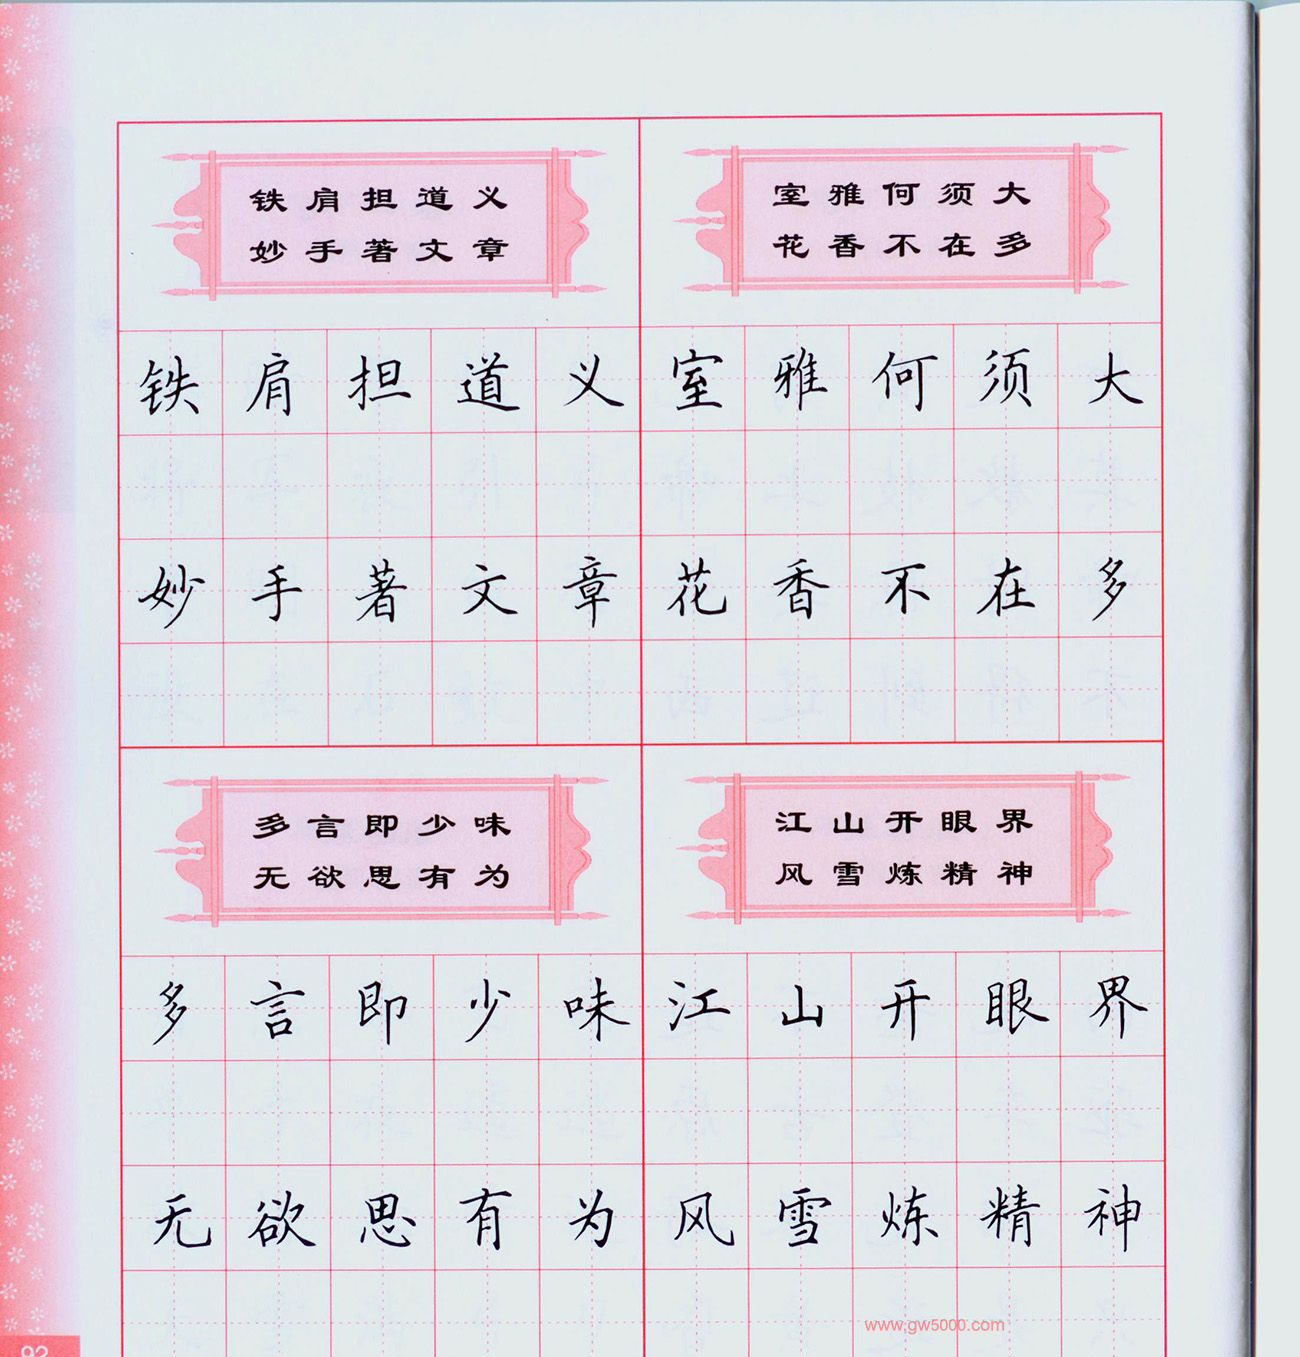 铁肩担道义
妙手著文章
室雅何须大
花香不在多
铁肩担道义
室雅何须大
妙手著文章
花香不在多
多言即少味
无欲思有为
江山开眼界
风雪炼精神
多言即少味
江山开眼界
无欲思有为
风雪炼精神
www.gw5000.com
92